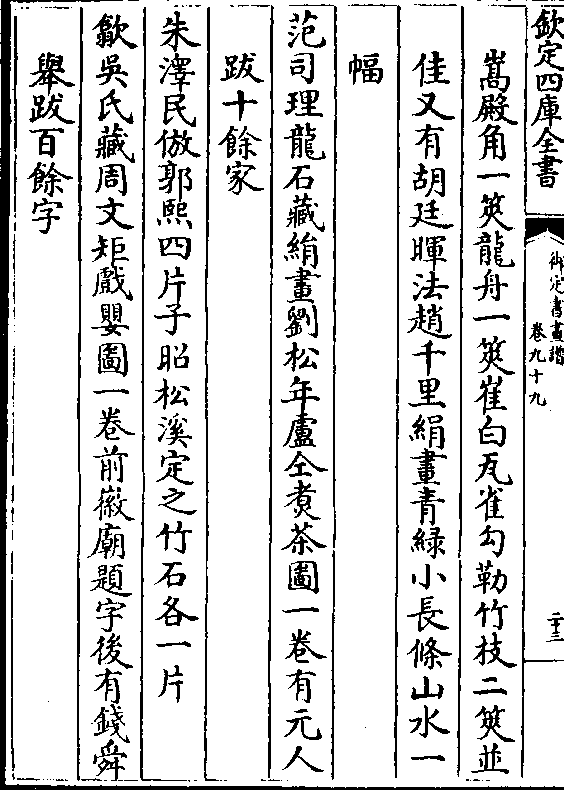 欽定四庫全書
御定書畫譜
卷九十九
二十三
嵩殿角一筴龍舟一筴崔白瓦雀勾勒竹枝二筴並
佳又有胡廷暉法趙千里絹畫青綠小長條山水一
幅
范司理龍石藏絹畫劉松年盧仝煑茶圖一卷有元人
跋十餘家
朱澤民倣郭熙四片子昭松溪定之竹石各一片
歙吳氏藏周文矩戲嬰圖一卷前徽廟題字後有錢舜
舉跋百餘字